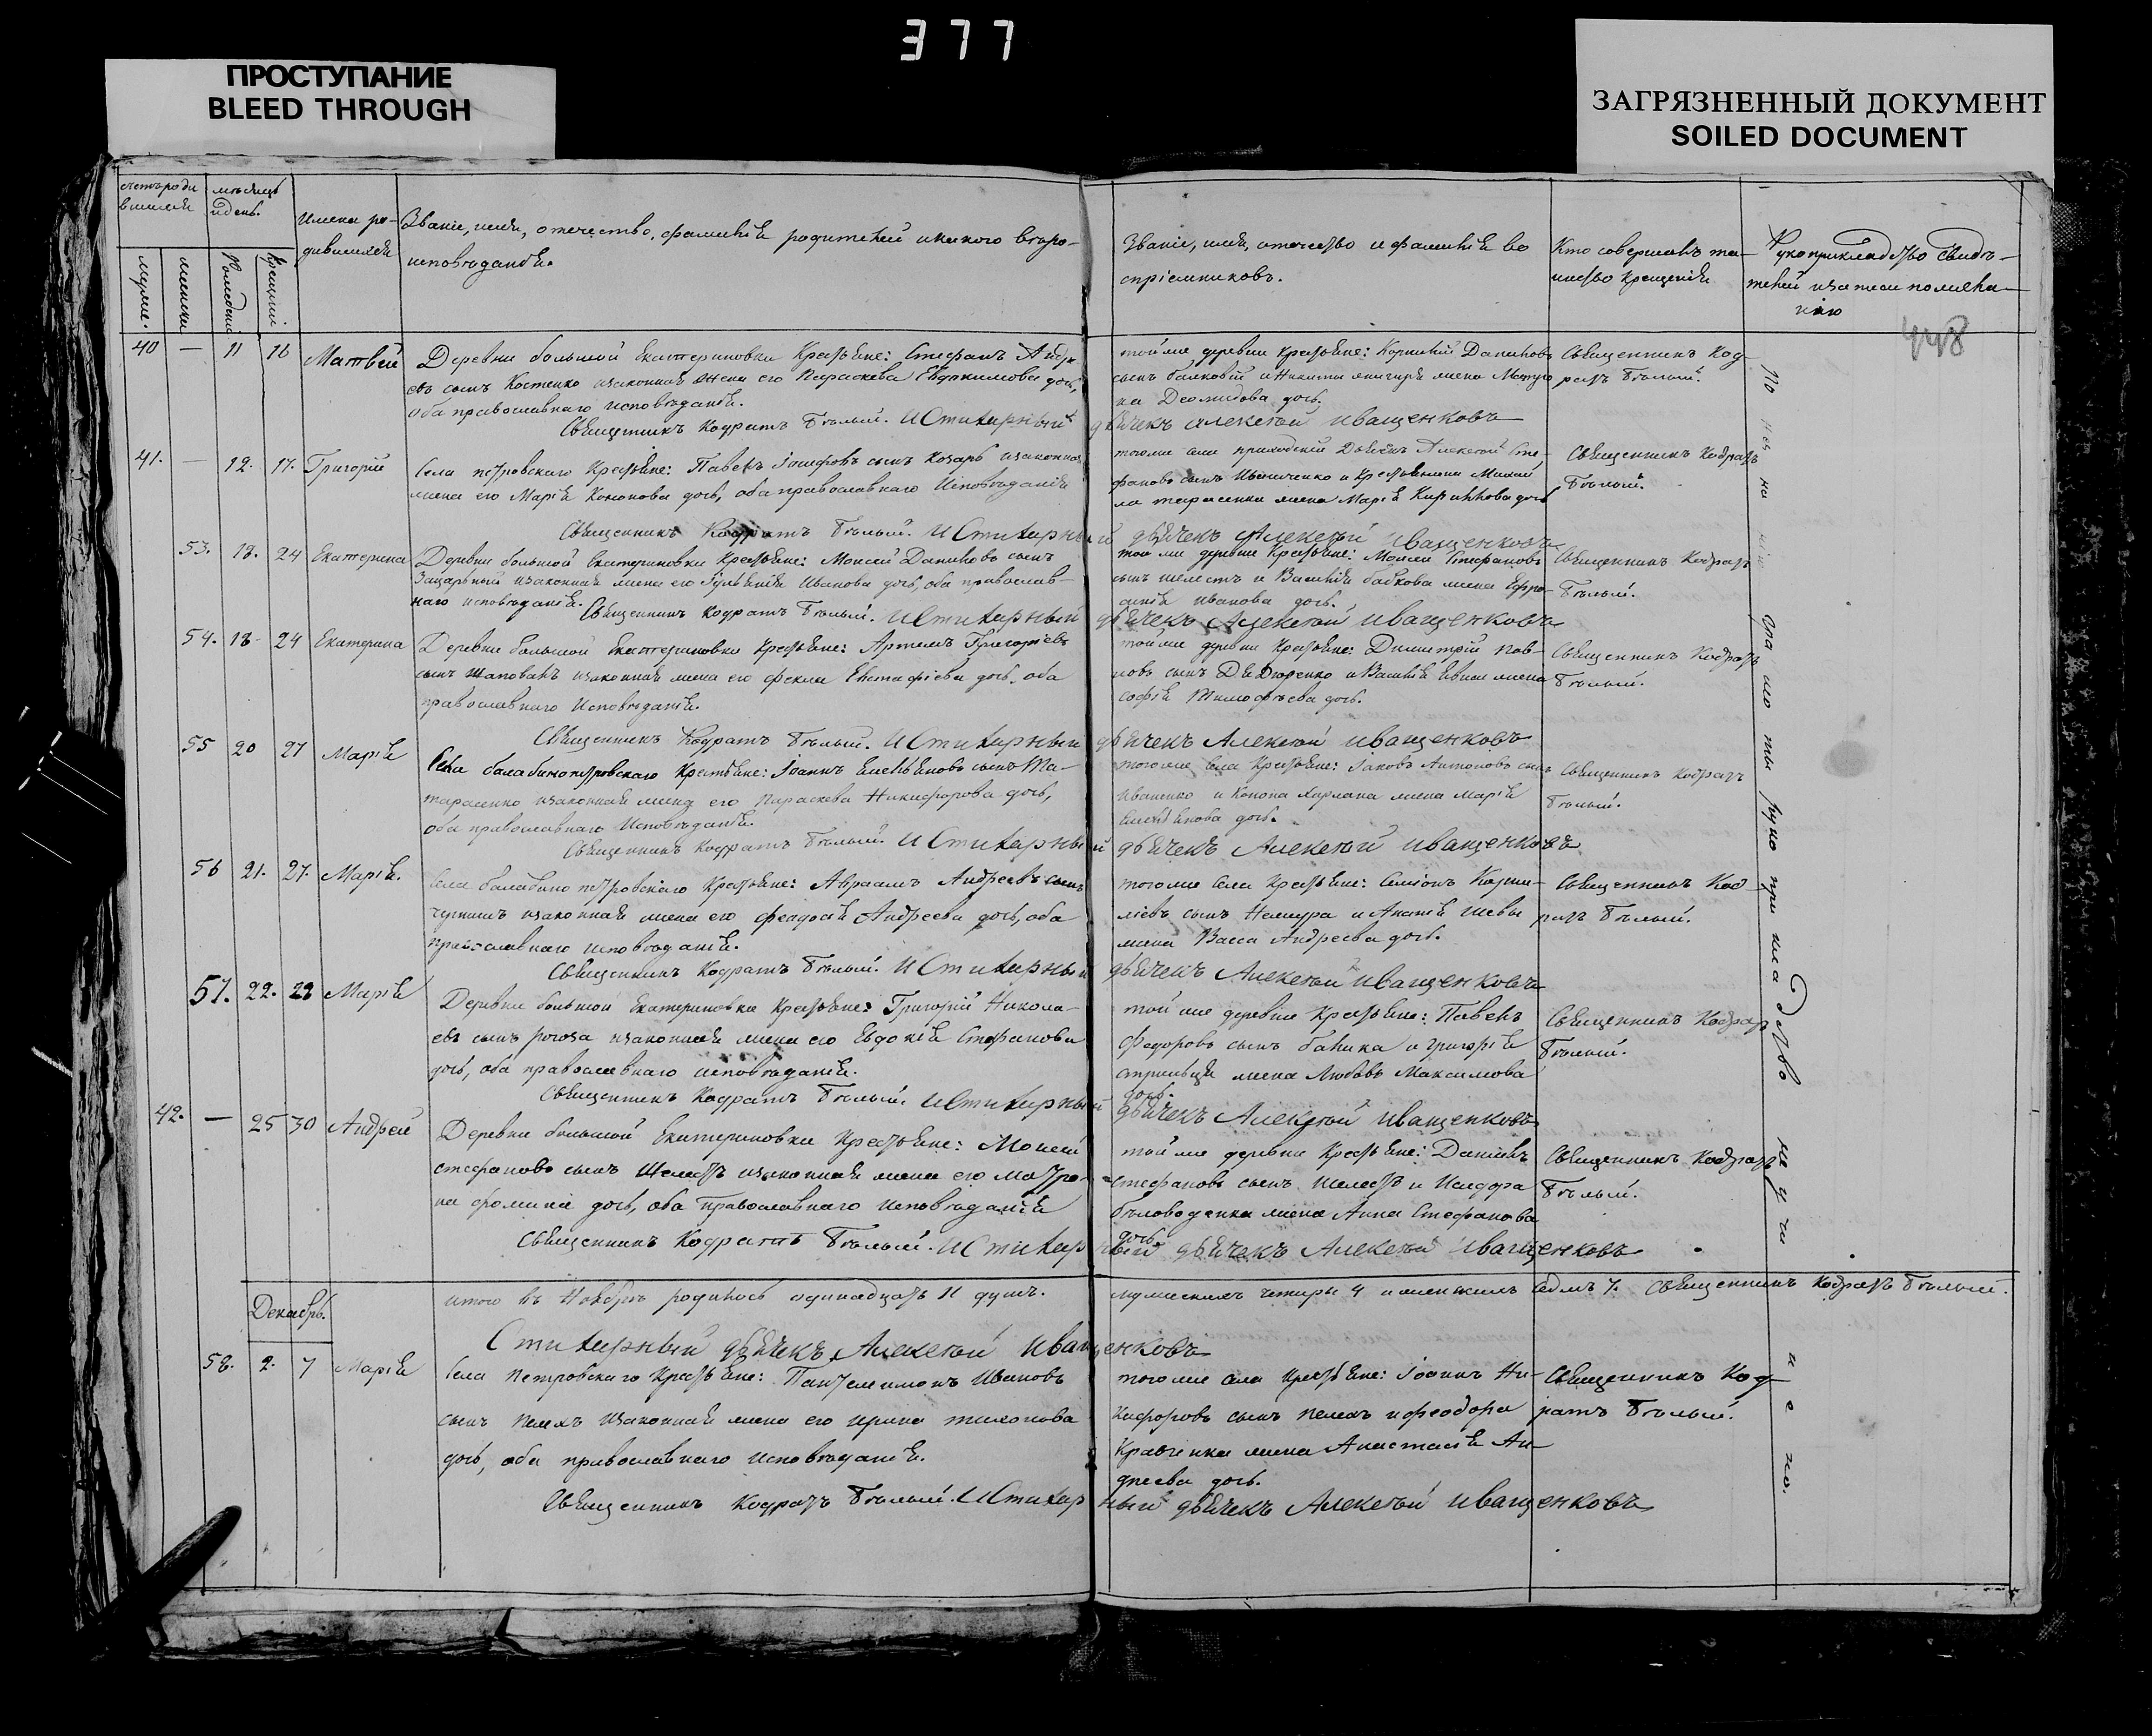 377
ПРОСТУПАНИЕ
BLEED THROUGH
ЗАГРЯЗНЕННЫЙ ДОКУМЕНТ
SOILED DOCUMENT
мѣсяцъ
и день.
Имена ро-
дившихся
Званіе, имя, отечество, фамилія родителей и какого вѣро-
исповѣданія.
Званіе, имя, отечество и фамилія во
спріемниковъ.
Кто совершалъ та-
инство крещенія
Рукоприкладство свидѣ-
телей
448
40 — 11 16 Матвей
Деревни большой Екатериновки Крестьяне: Стефанъ Андре
евъ сынъ Костенко и законная жена его Параскева Евдокимова дочь,
оба православнаго исповѣданія.
той же деревни крестьяне: Корнилій Даниловъ
сынъ и Никиты жена Матро
на Деомидова дочь.
Священникъ Код
ратъ Бѣлый.
Священникъ Кодратъ Бѣлый. И Стихарный дьячекъ Алексѣй Иващенковъ
41. — 12. 17. Григорій
Села петровскаго Крестьяне: Павелъ Іосифовъ сынъ Козарь и законная
жена его Марія Кононова дочь, оба православнаго Исповѣданія
тогоже села приходскій Дьячекъ Алексѣй Сте-
фановъ сынъ Иващенко и Крестьянина Михаи
ла тарасенка жена Марія Кириллова дочь
Священникъ Кодратъ
Бѣлый.
Священникъ Кодратъ Бѣлый. И Стихарный дьячекъ Алексѣй Иващенковъ
53. 18. 24 Екатерина
Деревни большой Екатериновки Крестьяне: Моисей Даниловъ сынъ
и законная жена его Іуліанія Иванова дочь, оба православ-
наго исповѣданія.
той же деревни Крестьяне: Моисей Стефановъ
сынъ шелестъ и Василія бабкова жена Ефро-
синія Иванова дочь.
Священникъ Кодратъ
Бѣлый.
Священникъ Кодратъ Бѣлый. И Стихарный дьячекъ Алексѣй Иващенковъ
54. 18- 24 Екатерина
Деревни большой Екатериновки Крестьяне: Артемъ Григоріевъ
сынъ Шаповалъ и законная жена его Фекла Евстафіева дочь. оба
православнаго Исповѣданія.
той же деревни Крестьяне: Димитрій пав-
ловъ сынъ Дядюренко и Василія жена
Софія Тимофѣева дочь.
Священникъ Кодратъ
Бѣлый.
Священникъ Кодратъ Бѣлый. И Стихарный дьячекъ Алексѣй Иващенковъ
55 20 27 Марія
Села балабинопетровскаго Крестьяне: Іоаннъ Емельяновъ сынъ Та-
тарасенко и законная жена его Параскева Никифорова дочь,
оба православнаго Исповѣданія.
тогоже села Крестьяне: Іаковъ Антоновъ сынъ
Иваненко и Конона Харлана жена Марія
Емельянова дочь.
Священникъ Кодратъ
Бѣлый.
Священникъ Кодратъ Бѣлый. И Стихарный дьячекъ Алексѣй Иващенковъ
56 21. 27. Марія.
Села балабино петровскаго Крестьяне: Авраамъ Андреевъ сынъ
и законная жена его Феодосія Андреева дочь, оба
православнаго исповѣданія.
тогоже села Крестьяне: Симіонъ Корни-
ліевъ сынъ и Ананія шевы
жена Васса Андреева дочь.
Священникъ Код-
ратъ Бѣлый.
Священникъ Кодратъ Бѣлый. И Стихарный дьячекъ Алексѣй Иващенковъ
57. 22. 28 Марія
Деревни большой Екатериновки Крестьяне: Григорій Никола-
евъ сынъ рогоза и законная жена его Евдокія Стефанова
дочь, оба православнаго исповѣданія.
той же деревни Крестьяне: Павелъ
Федоровъ сынъ балика и григорія
жена Любовь Максимова
дочь.
Священникъ Кодратъ
Бѣлый.
Священникъ Кодратъ Бѣлый. И Стихарный дьячекъ Алексѣй Иващенковъ
42. — 25 30 Андрей
Деревни большой Екатериновки Крестьяне: Моисей
стефановъ сынъ Шелестъ и законная жена его Матро-
на фомина дочь, оба Православнаго исповѣданія
той же деревни Крестьяне: Даніилъ
стефановъ сынъ шелестъ и Исидора
бѣловоденка жена Анна Стефанова
дочь.
Священникъ Кодратъ
Бѣлый.
Священникъ Кодратъ Бѣлый. И Стихарный дьячекъ Алексѣй Иващенковъ
итого въ Ноябрѣ родилось одинадцать 11 душъ. мужескихъ четыре 4 и женскихъ седмъ 7. Священникъ Кодратъ Бѣлый.
Стихарный дьячекъ Алексѣй Иващенковъ
Декабрь.
58. 2. 7 Марія
Села Петровскаго Крестьяне: Пантелеимонъ Ивановъ
сынъ пелехъ и законная жена его ирина тихонова
дочь, оба православнаго исповѣданія.
тогоже села Крестьяне: Іоаннъ Ни-
кифоровъ сынъ пелехъ и феодора
Кравченка жена Анастасія Ан-
дреева дочь.
Священникъ Код-
ратъ Бѣлый.
Священникъ Кодратъ Бѣлый. И Стихарный дьячекъ Алексѣй Иващенковъ